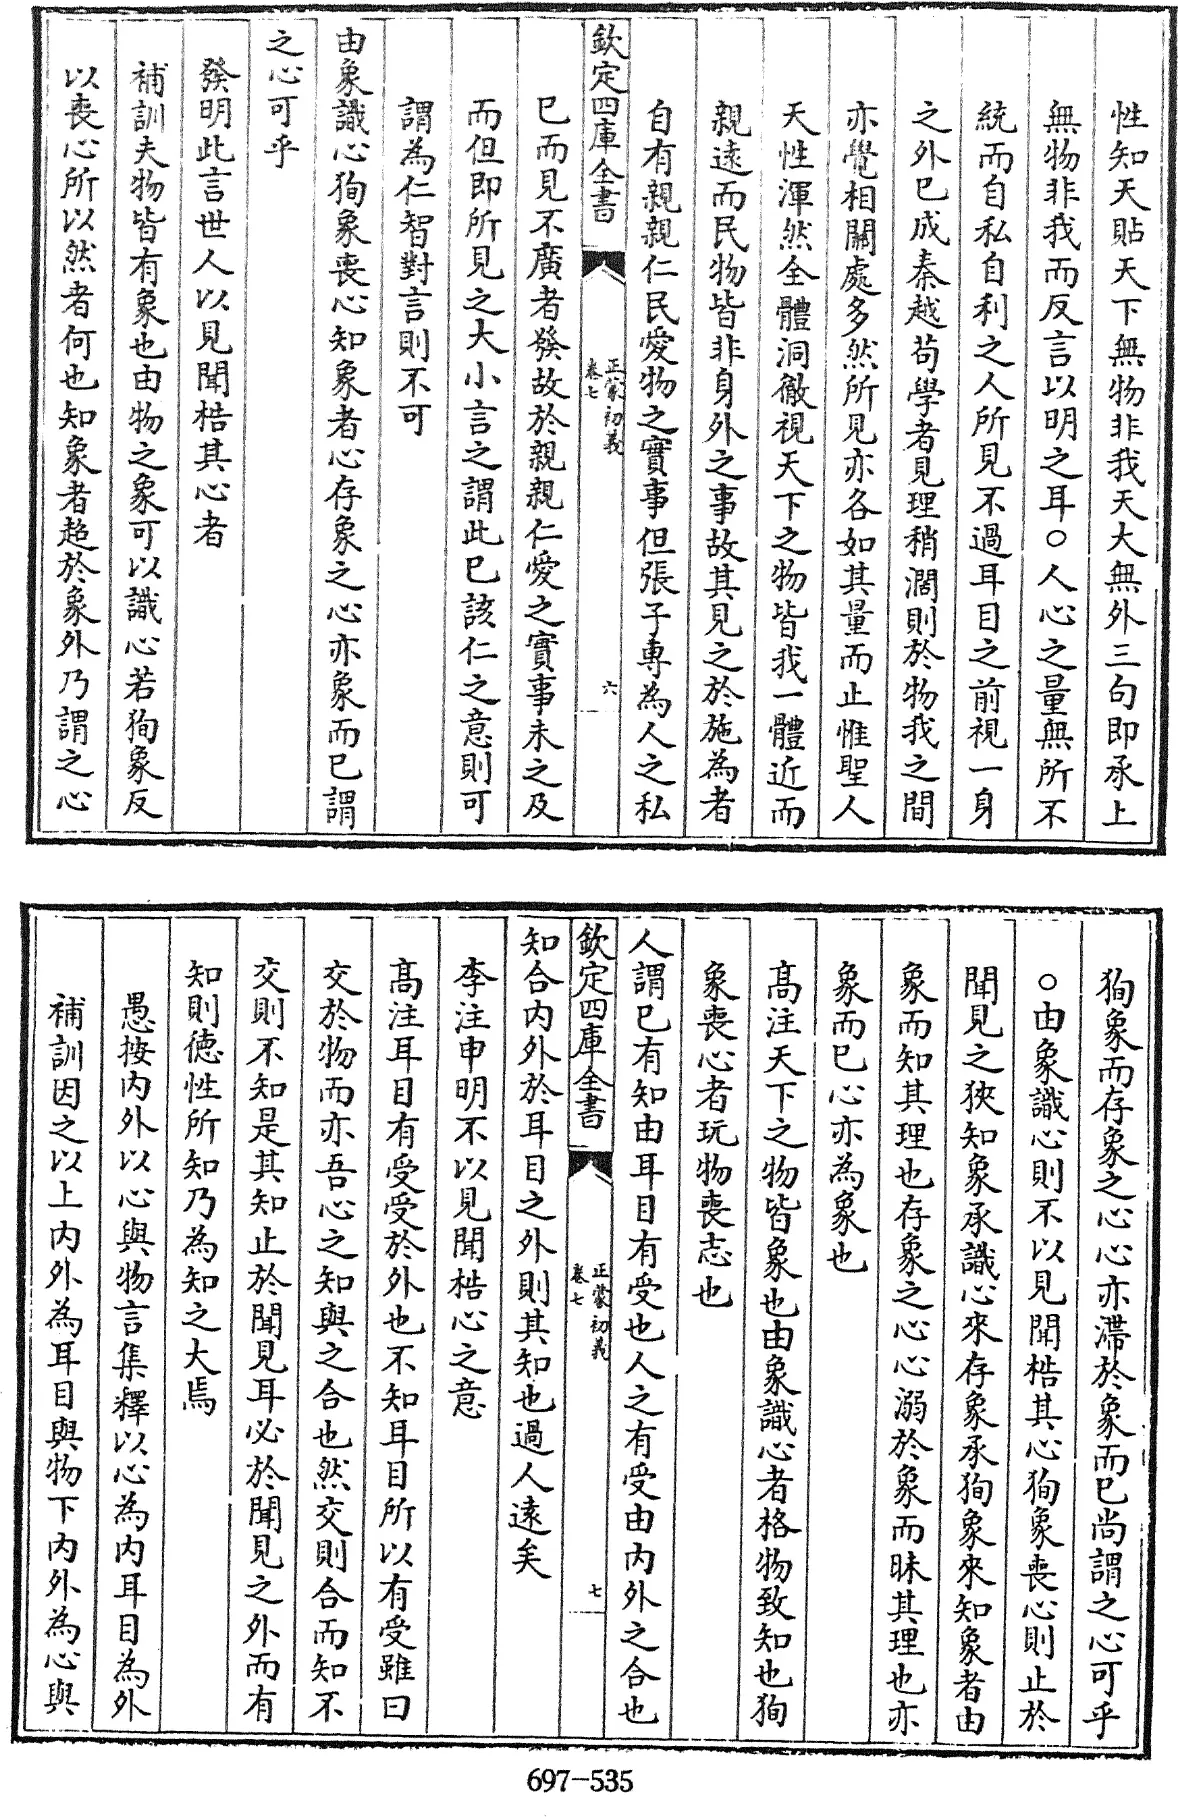 性知天貼天下無物非我天大無外三句即承上
無物非我而反言以明之耳○人心之量無所不
統而自私自利之人所見不過耳目之前視一身
之外已成秦越苟學者見理稍濶則於物我之間
亦覺相關處多然所見亦各如其量而止惟聖人
天性渾然全體洞徹視天下之物皆我一體近而
親遠而民物皆非身外之事故其見之於施為者
自有親親仁民愛物之實事但張子專為人之私
欽定四庫全書
正蒙初義
卷七
六
已而見不廣者發故於親親仁愛之實事未之及
而但即所見之大小言之謂此已該仁之意則可
謂為仁智對言則不可
由象識心狥象喪心知象者心存象之心亦象而已謂
之心可乎
發明此言世人以見聞梏其心者
補訓夫物皆有象也由物之象可以識心若狥象反
以喪心所以然者何也知象者超於象外乃謂之心
狥象而存象之心心亦滯於象而已尚謂之心可乎
○由象識心則不以見聞梏其心狥象喪心則止於
聞見之狹知象承識心來存象承狥象來知象者由
象而知其理也存象之心心溺於象而昧其理也亦
象而已心亦為象也
髙注天下之物皆象也由象識心者格物致知也狥
象喪心者玩物喪志也
人謂已有知由耳目有受也人之有受由内外之合也
欽定四庫全書
正蒙初義
卷七
七
知合内外於耳目之外則其知也過人遠矣
李注申明不以見聞梏心之意
髙注耳目有受受於外也不知耳目所以有受雖曰
交於物而亦吾心之知與之合也然交則合而知不
交則不知是其知止於聞見耳必於聞見之外而有
知則徳性所知乃為知之大焉
愚按内外以心與物言集釋以心為内耳目為外
補訓因之以上内外為耳目與物下内外為心與
697-535